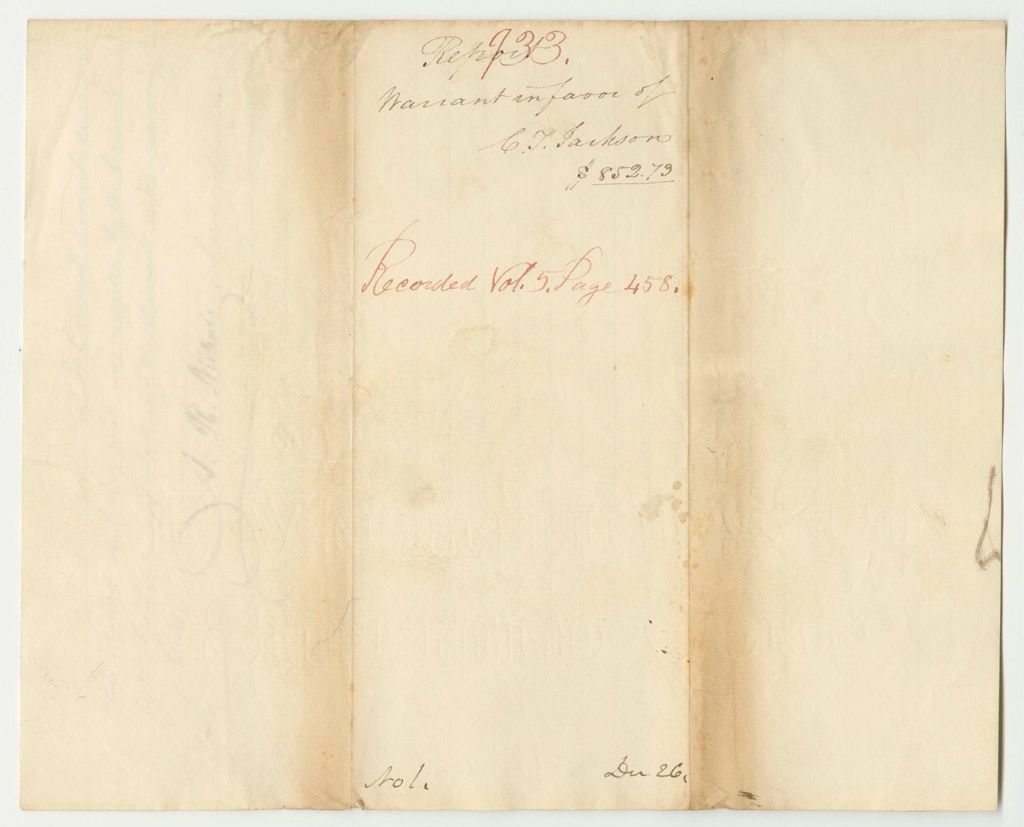 Report
733.
Warrant in favor of
C. T. Jackson
$ 852.73
Recorded Vol. 5. Page 458.
No 1.
Dec 26.